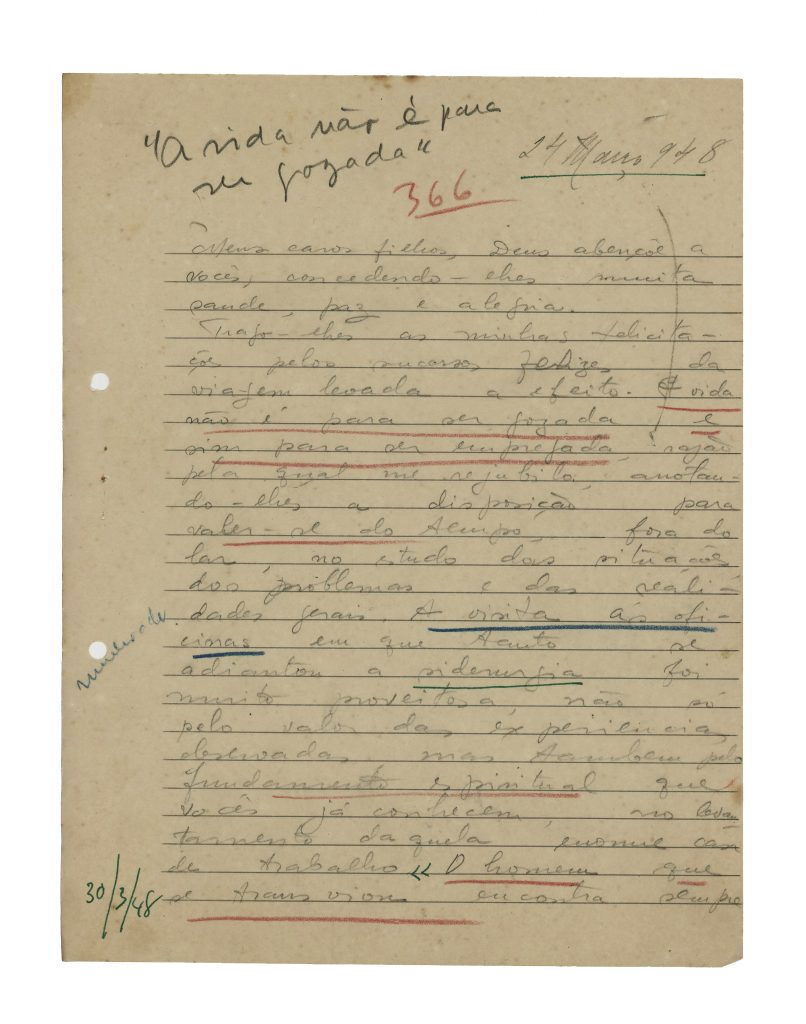 "A vida não é para
ser gozada"
24 Março 948
366
Meus caros filhos, Deus abençôe a
vocês, concedendo-lhes muita
saude, paz e alegria.
Trago-lhes as minhas felicita-
ções pelos sucessos felizes da
viagem levada a efeito. A vida
não é para ser gozada e
sim para ser empregada, razão
pela qual me rejubilo, anotan-
do-lhes a disposição para
valer-se do tempo, fora do
lar, no estudo das situações
dos problemas e das reali-
dades gerais. A visita ás ofi-
cinas em que tanto se
adiantou a siderurgia foi
muito proveitosa, não só
pelo valor das experiencias
observadas mas tambem pelo
fundamento espiritual que
vocês já conhecem, no levan
tamento daquela enorme casa
de trabalho << O homem que
se transviou encontra sempre
30/3/48